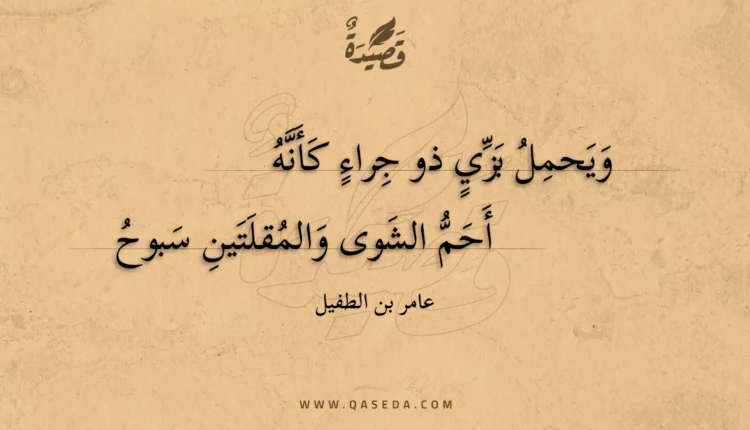 قَصِيْدَةٌ
وَيَحمِلُ بَزِّيٍ ذو جِراءٍ كَأَنَّهُ
أَحَمُّ الشَوى وَالمُقلَتَينِ سَبوحُ
عامر بن الطفيل
WWW.QASEDA.COM